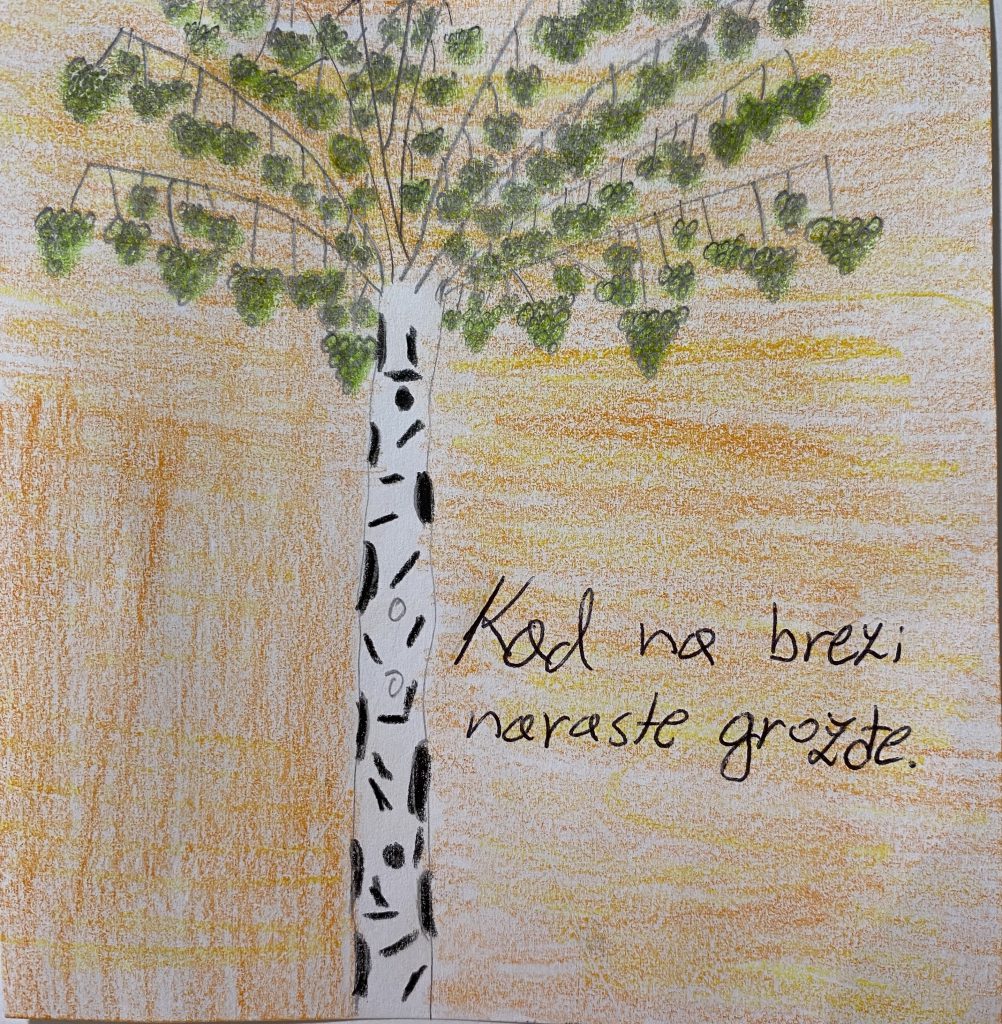 Kad na brezi
naraste grozđe.